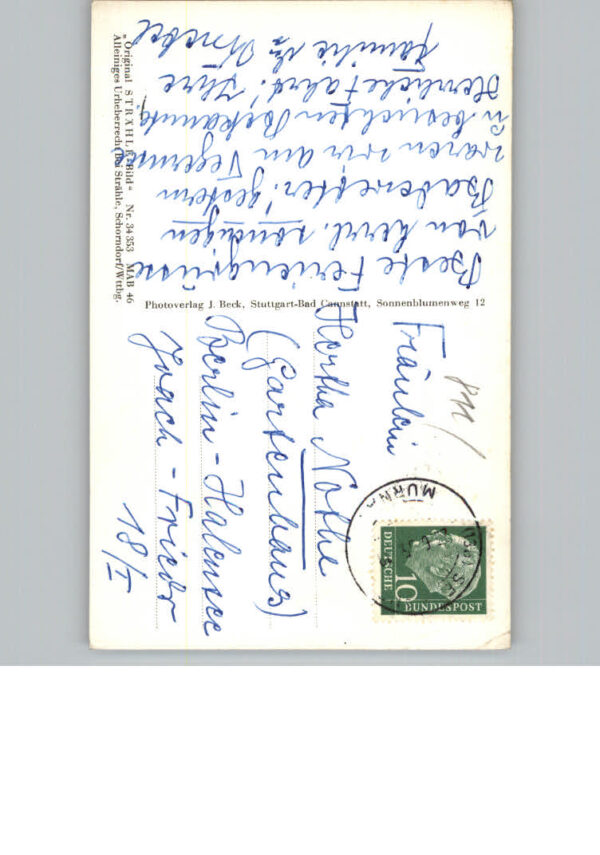 Beste Feriengrüsse
von herrl. sonnigen
Badewetter! gestern
waren wir am Tegernsee
u. besuchten Bekannte
Herrliche Fahrt! Ihre
Familie
"Original STRÄHLE-Bild" Nr. 34353 MAB 46
Alleiniges Urheberrecht bei Strähle, Schorndorf/Wttbg.
Photoverlag J. Beck, Stuttgart-Bad Cannstatt, Sonnenblumenweg 12
Fräulein
Hertha Nothe
(Gartenhaus)
Berlin-Halensee
Joach-Friedr
18/I
MURN
10
DEUTSCHE
BUNDESPOST